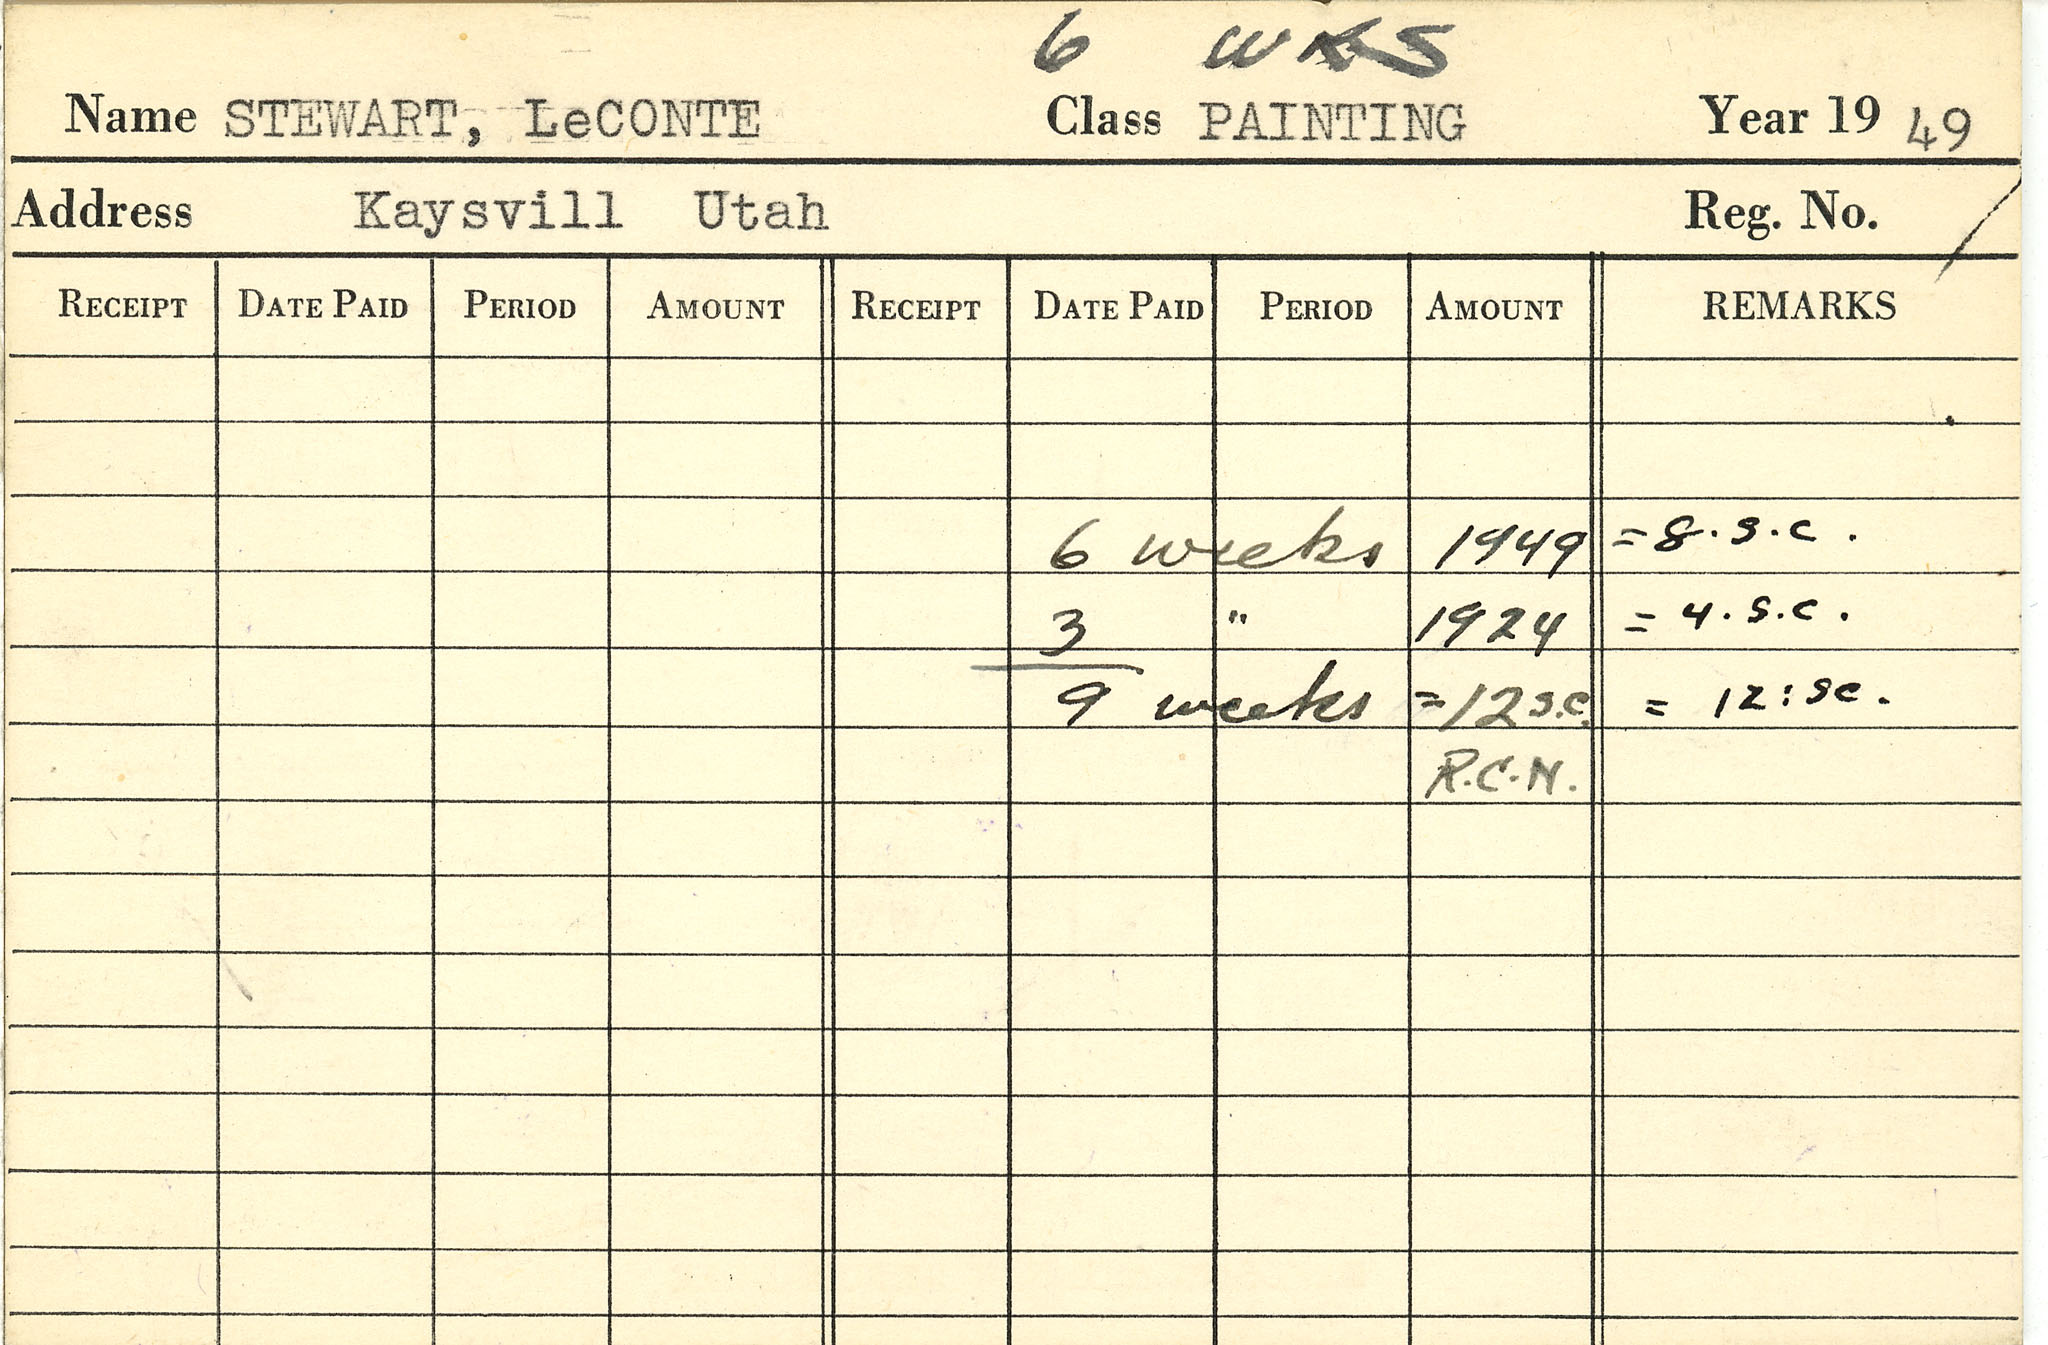 6 WKS
Name STEWART, LeCONTE Class PAINTING Year 19 49
Address Kaysvill Utah Reg. No.
RECEIPT DATE PAID PERIOD AMOUNT RECEIPT DATE PAID PERIOD AMOUNT REMARKS
6 weeks 1949 = 8.s.c.
3 " 1924 = 4.s.c.
9 weeks = 12 s.c. = 12:sc.
R.C.N.